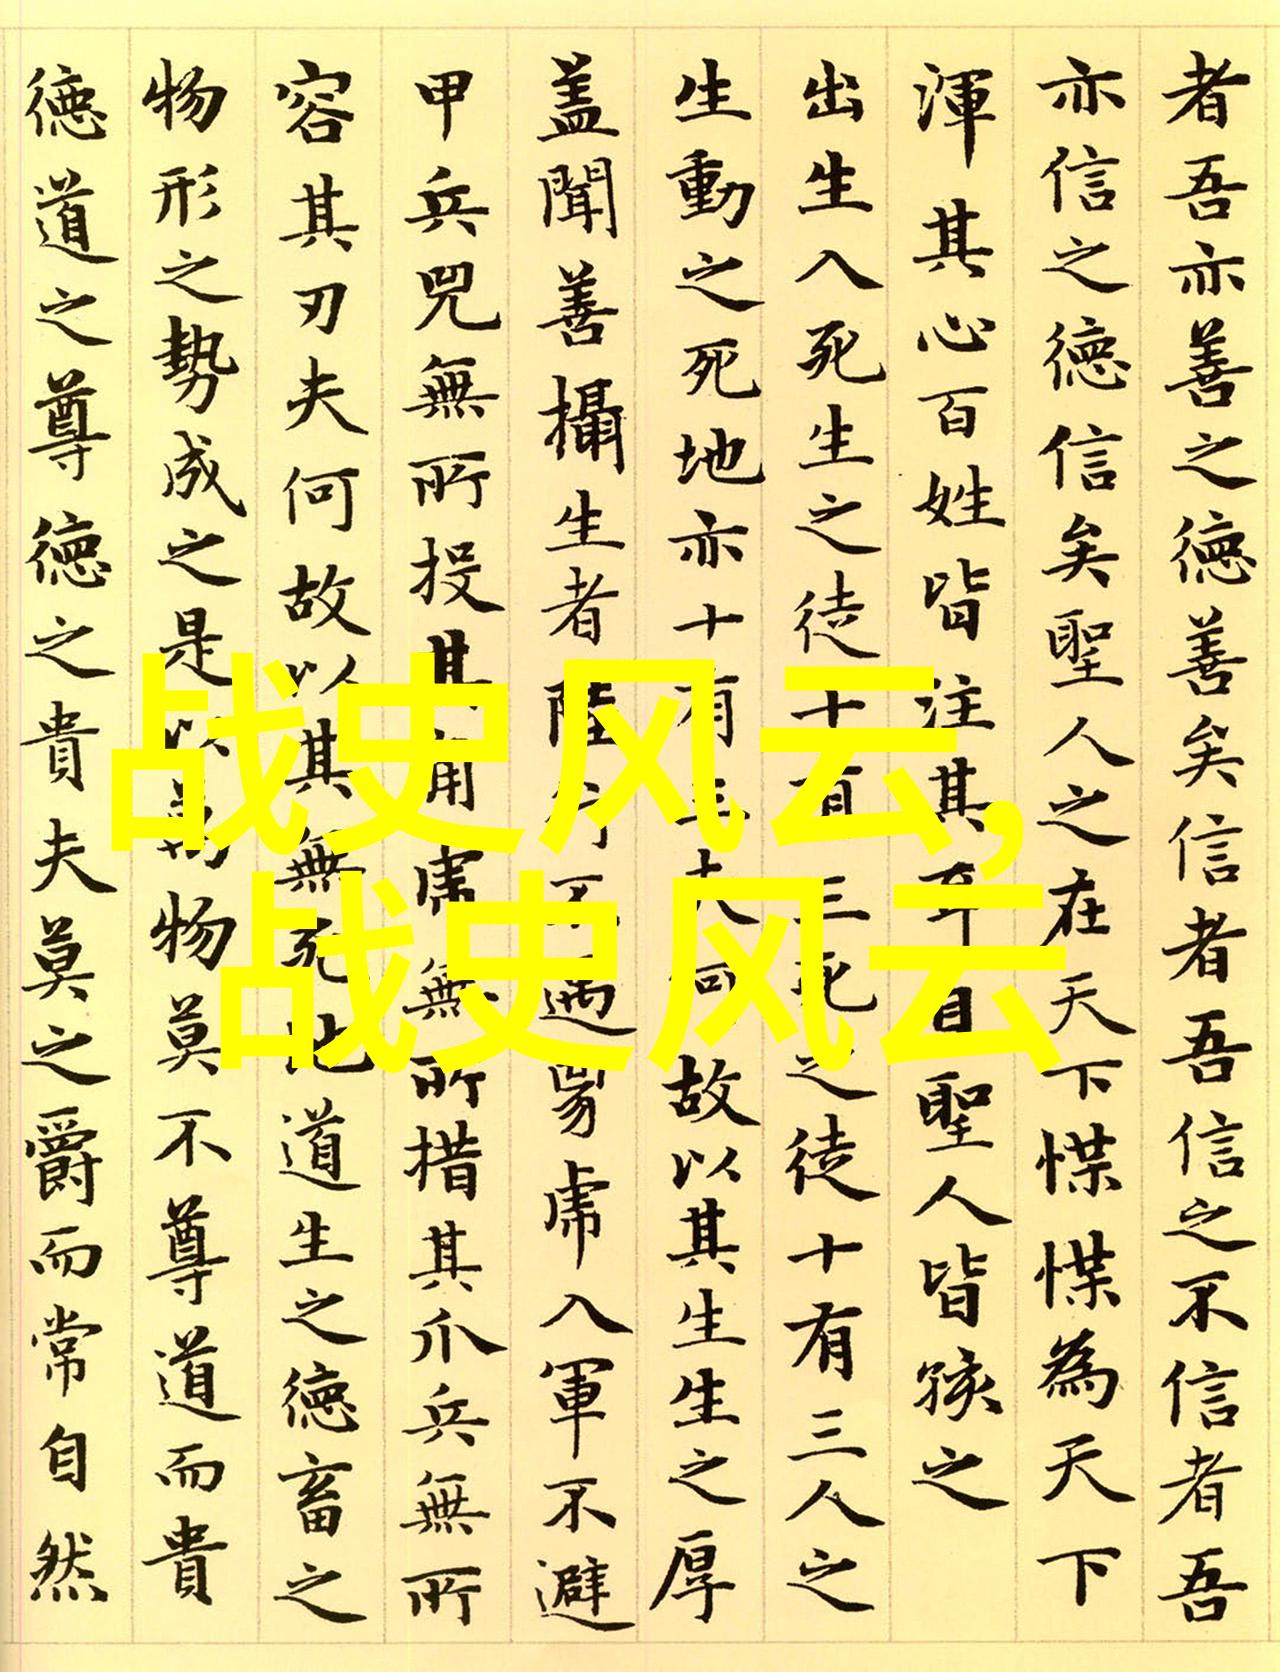 者吾亦善之德善矣信者吾信之不信者吾
亦信之德信矣聖人之在天下惵惵為天下
渾其心百姓皆注其耳目聖人皆孩之
出生入死生之徒十有三死之徒十有三人之
生動之死地亦十有三夫何故以其生生之厚
蓋聞善攝生者陸行不遇兕虎入軍不避
甲兵兕無所投其角虎無所措其爪兵無所
容其刃夫何故以其無死地道生之德畜之
物形之勢成之是以萬物莫不尊道而貴
德道之尊德之貴夫莫之爵而常自然
战史风云,
战史风云